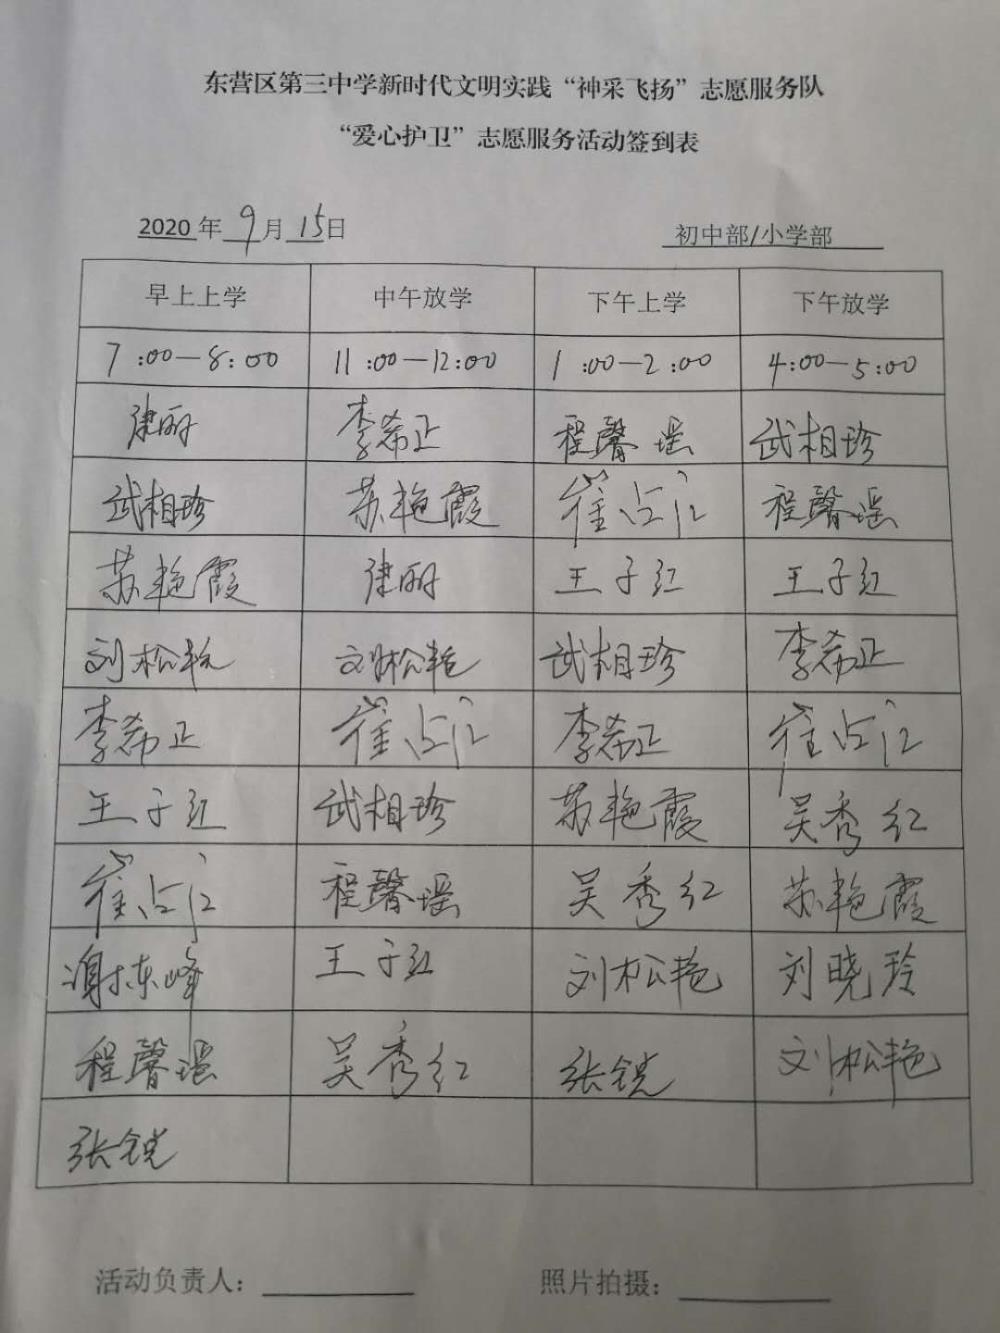 东营区第三中学新时代文明实践“神采飞扬”志愿服务队
“爱心护卫”志愿服务活动签到表
2020年9月15日 初中部/小学部
早上上学 中午放学 下午上学 下午放学
7:00—8:00 11:00—12:00 1:00—2:00 4:00—5:00
建丽 李希正 程馨瑶 武相珍
武相珍 苏艳霞 崔占江 程馨瑶
苏艳霞 建丽 王子红 王子红
刘松艳 刘松艳 武相珍 李希正
李希正 崔占江 李希正 崔占江
王子红 武相珍 苏艳霞 吴秀红
崔占江 程馨瑶 吴秀红 苏艳霞
东峰 王子红 刘松艳 刘晓玲
程馨瑶 吴秀红 张锐 刘松艳
张锐
活动负责人: 照片拍摄: